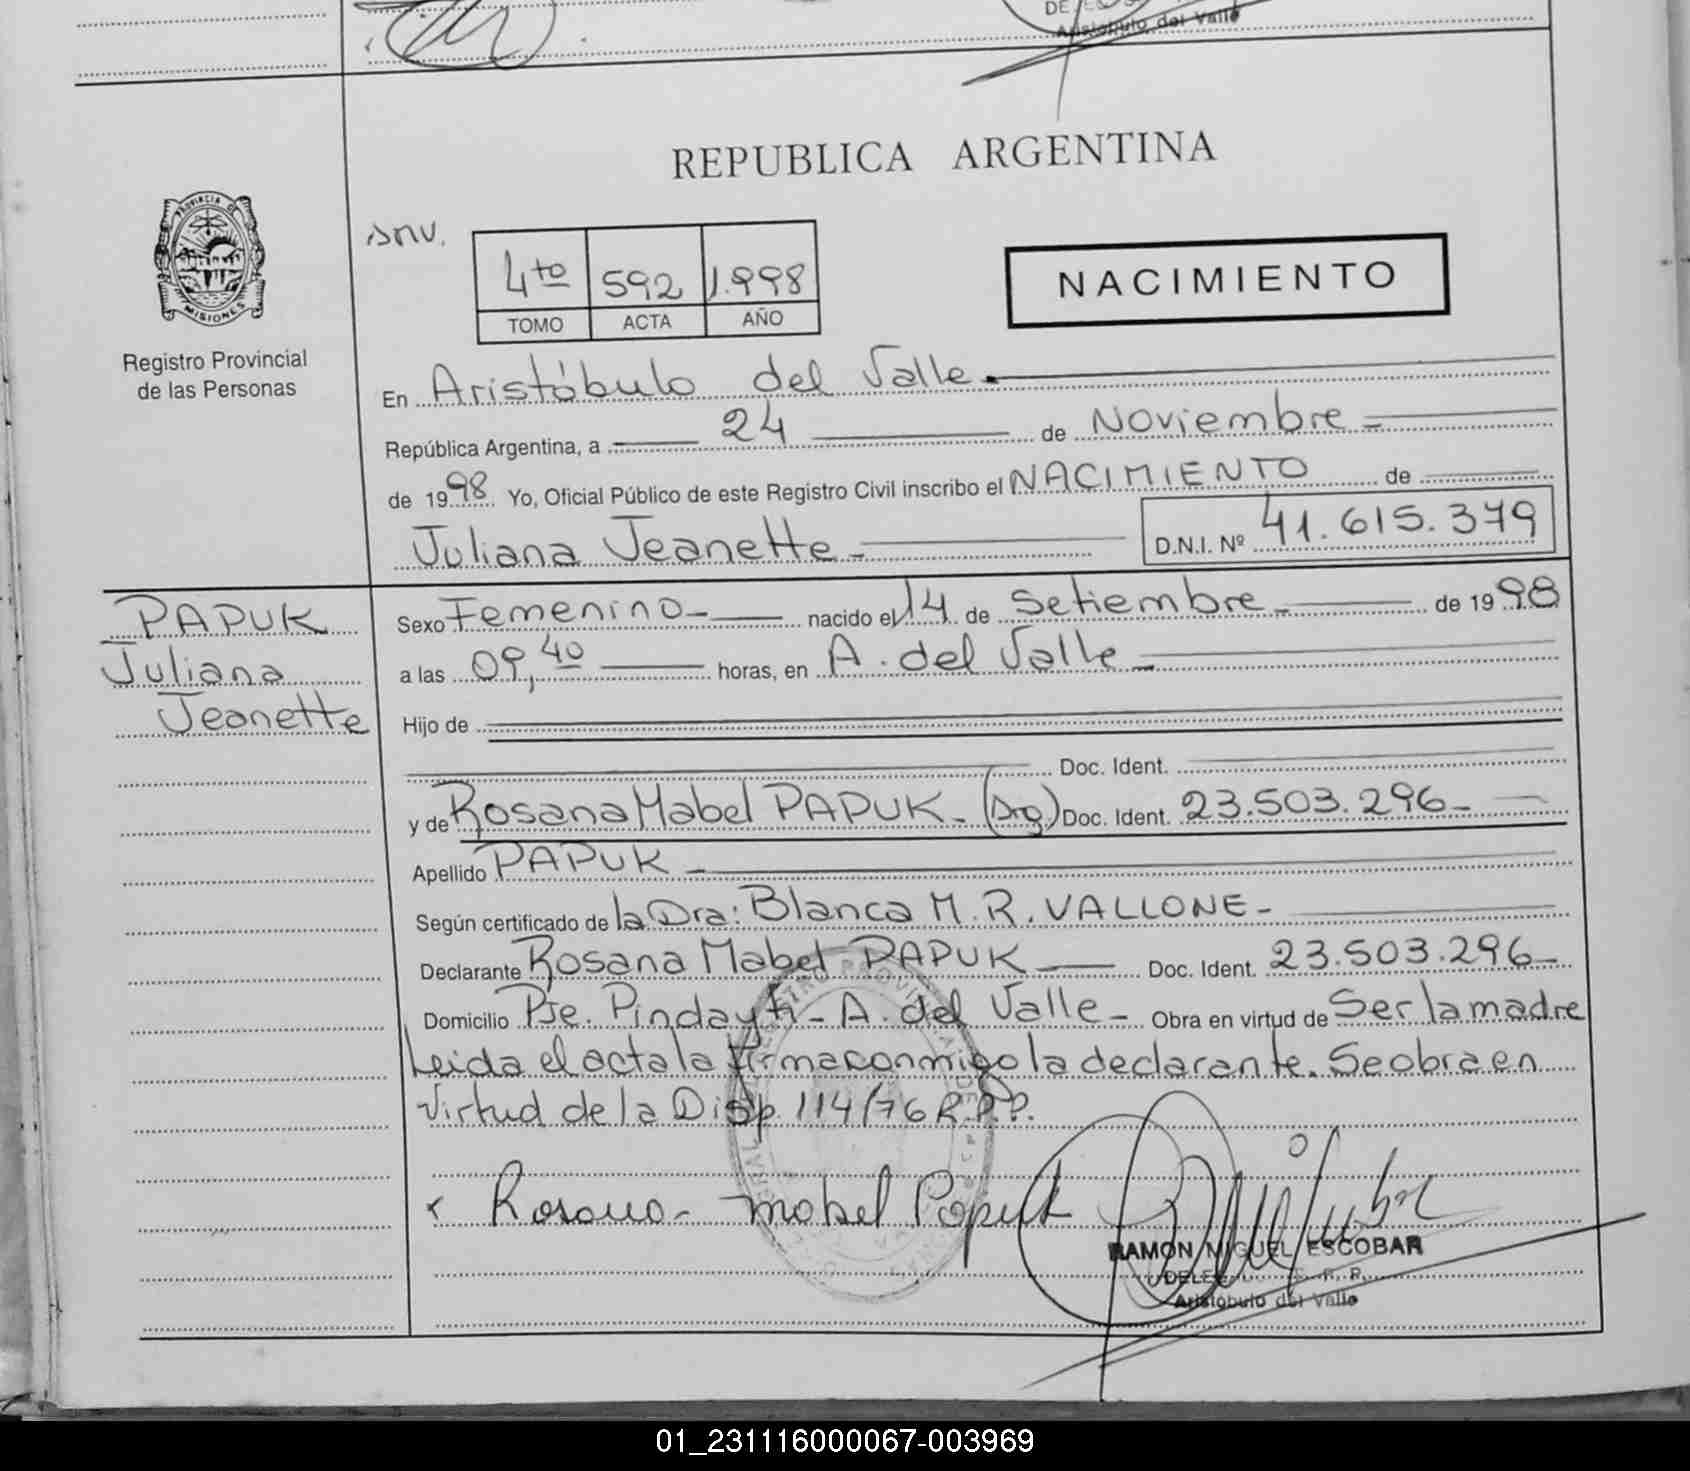 DE
Aristobulo del Valle
REPUBLICA ARGENTINA
PROVINCIA DE
MISIONES
Registro Provincial
de las Personas
snv.
4to 592 1.998
TOMO ACTA AÑO
NACIMIENTO
En Aristóbulo del Valle.
República Argentina, a 24 de Noviembre
de 1998. Yo, Oficial Público de este Registro Civil inscribo el NACIMIENTO de
Juliana Jeanette D.N.I. Nº 41.615.379
PAPUK
Juliana
Jeanette
Sexo Femenino nacido el 14 de Setiembre de 1998
a las 09,40 horas, en A. del Valle
Hijo de
Doc. Ident.
y de Rosana Mabel PAPUK (Arg.) Doc. Ident. 23.503.296
Apellido PAPUK
Según certificado de la Dra: Blanca M. R. VALLONE
Declarante Rosana Mabel PAPUK Doc. Ident. 23.503.296
Domicilio Pje. Pindayti - A. del Valle - Obra en virtud de Ser la madre
Leida el acta la firma conmigo la declarante. Se obra en
virtud de la Disp. 114/76 R.P.P.
x Rosana Mabel Papuk
RAMON MIGUEL ESCOBAR
R. P.
Aristobulo del Valle
01_231116000067-003969